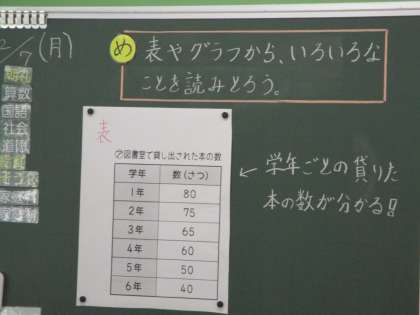 2/17(月)
め 表やグラフから、いろいろな
ことを読みとろう。
朝礼
算数
国語
社会
道徳
表
⑦図書室で貸し出された本の数
学年 数(さつ)
1年 80
2年 75
3年 65
4年 60
5年 50
6年 40
← 学年ごとの貸りた
本の数が分かる!!